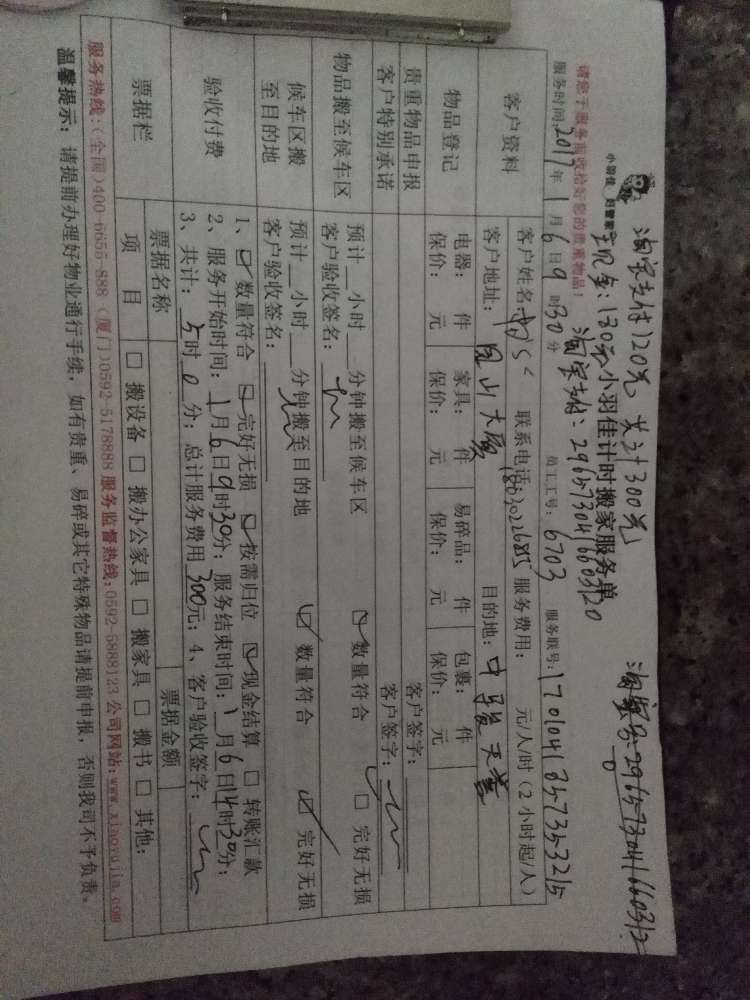 淘宝支付120元 共计300元
淘宝号:2965730416603120
现金:180元
淘宝支付:2965730416603120
小羽佳 归管家
小羽佳计时搬家服务单
请您于服务前收拾好您的贵重物品!
服务时间:2017年1月6日9时30分 员工工号:6703 服务联号:1701041857353215
客户资料 客户姓名: 联系电话: 服务费用: 元/人/时(2小时起/人)
客户地址: 凤山大厦 目的地:
物品登记 电器: 件 家具: 件 易碎品: 件 包裹: 件
保价: 元 保价: 元 保价: 元 保价: 元
贵重物品申报 客户签字:
客户特别承诺 客户签字:
物品搬至候车区 预计 小时 分钟搬至候车区 ☑数量符合 □完好无损
客户验收签名:
候车区搬至目的地 预计 小时 分钟搬至目的地 ☑数量符合 ☑完好无损
客户验收签名:
验收付费 1、☑数量符合 ☑完好无损 ☑按需归位 ☑现金结算 □转账汇款
2、服务开始时间:1月6日9时30分;服务结束时间:1月6日14时30分;
3、共计:5时0分;总计服务费用300元;4、客户验收签字:
票据栏 票据名称 票据金额
项目 □搬设备 □搬办公家具 □搬家具 □搬书 □其他:
服务热线:(全国)400-6655-888 (厦门)0592-5178888 服务监督热线:0592-5888123 公司网站:www.xiaoyujia.com
温馨提示:请提前办理好物业通行手续,如有贵重、易碎或其它特殊物品请提前申报,否则我司不予负责。